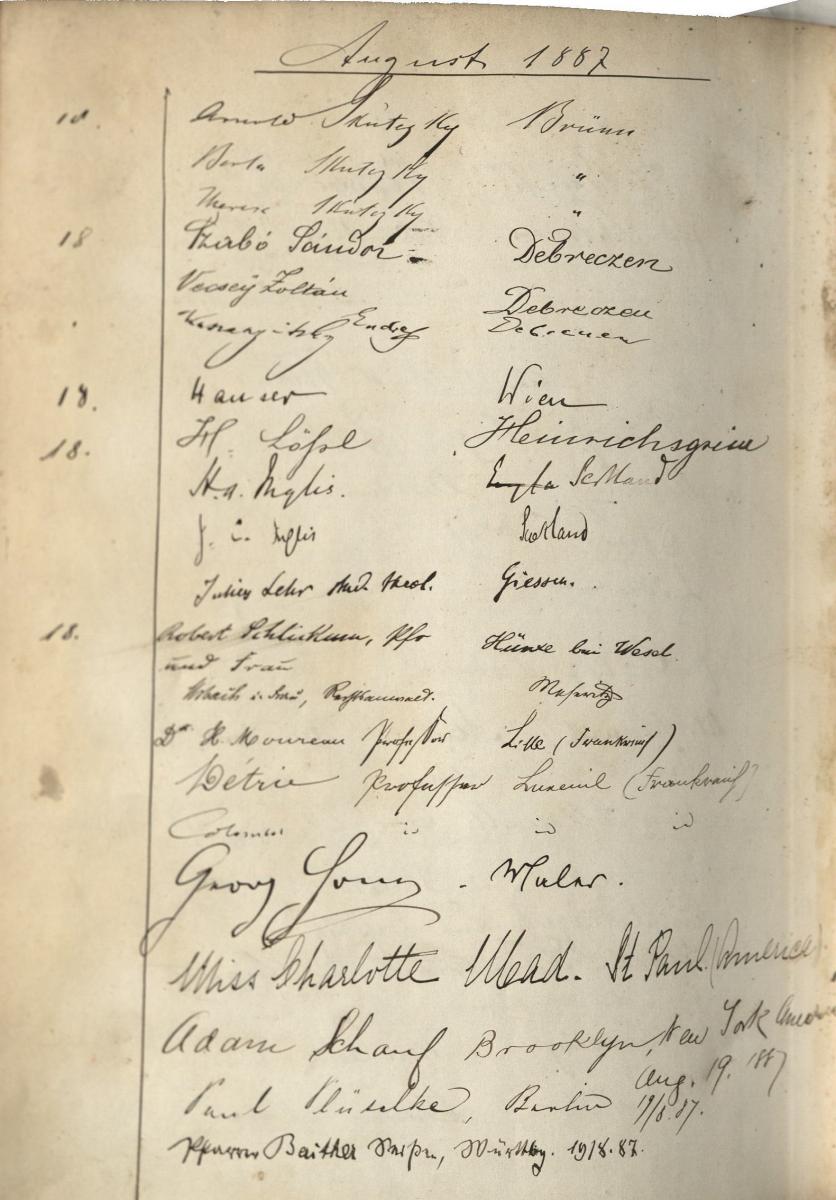 August 1887
18. Arnold Skutezky Brünn
Berta Skutezky "
Therese Skutezky "
18 Szabó Sándor Debreczen
Vecsey Zoltán Debreczen
Endre Debreczen
18. Hauser Wien
18. H. Lößl Heinrichsgrün
H. A. Inglis. Scotland
J. C. Inglis Scotland
Julius Lehr stud. theol. Giessen.
18. Robert Schlickum, Pfr Hünxe bei Wesel
und Frau
Meseritz
Dr H. Moureau Professor Lille (Frankreich)
Détrie Professor Luxeuil (Frankreich)
Colomer id id id
Georg Maler.
Miss Charlotte Mead. St Paul (America)
Adam Schauf Brooklyn, New York
Aug. 19. 1887
Paul Plüschke, Berlin 19/8.87.
Pfarrer Baither Württbg. 19/8.87.